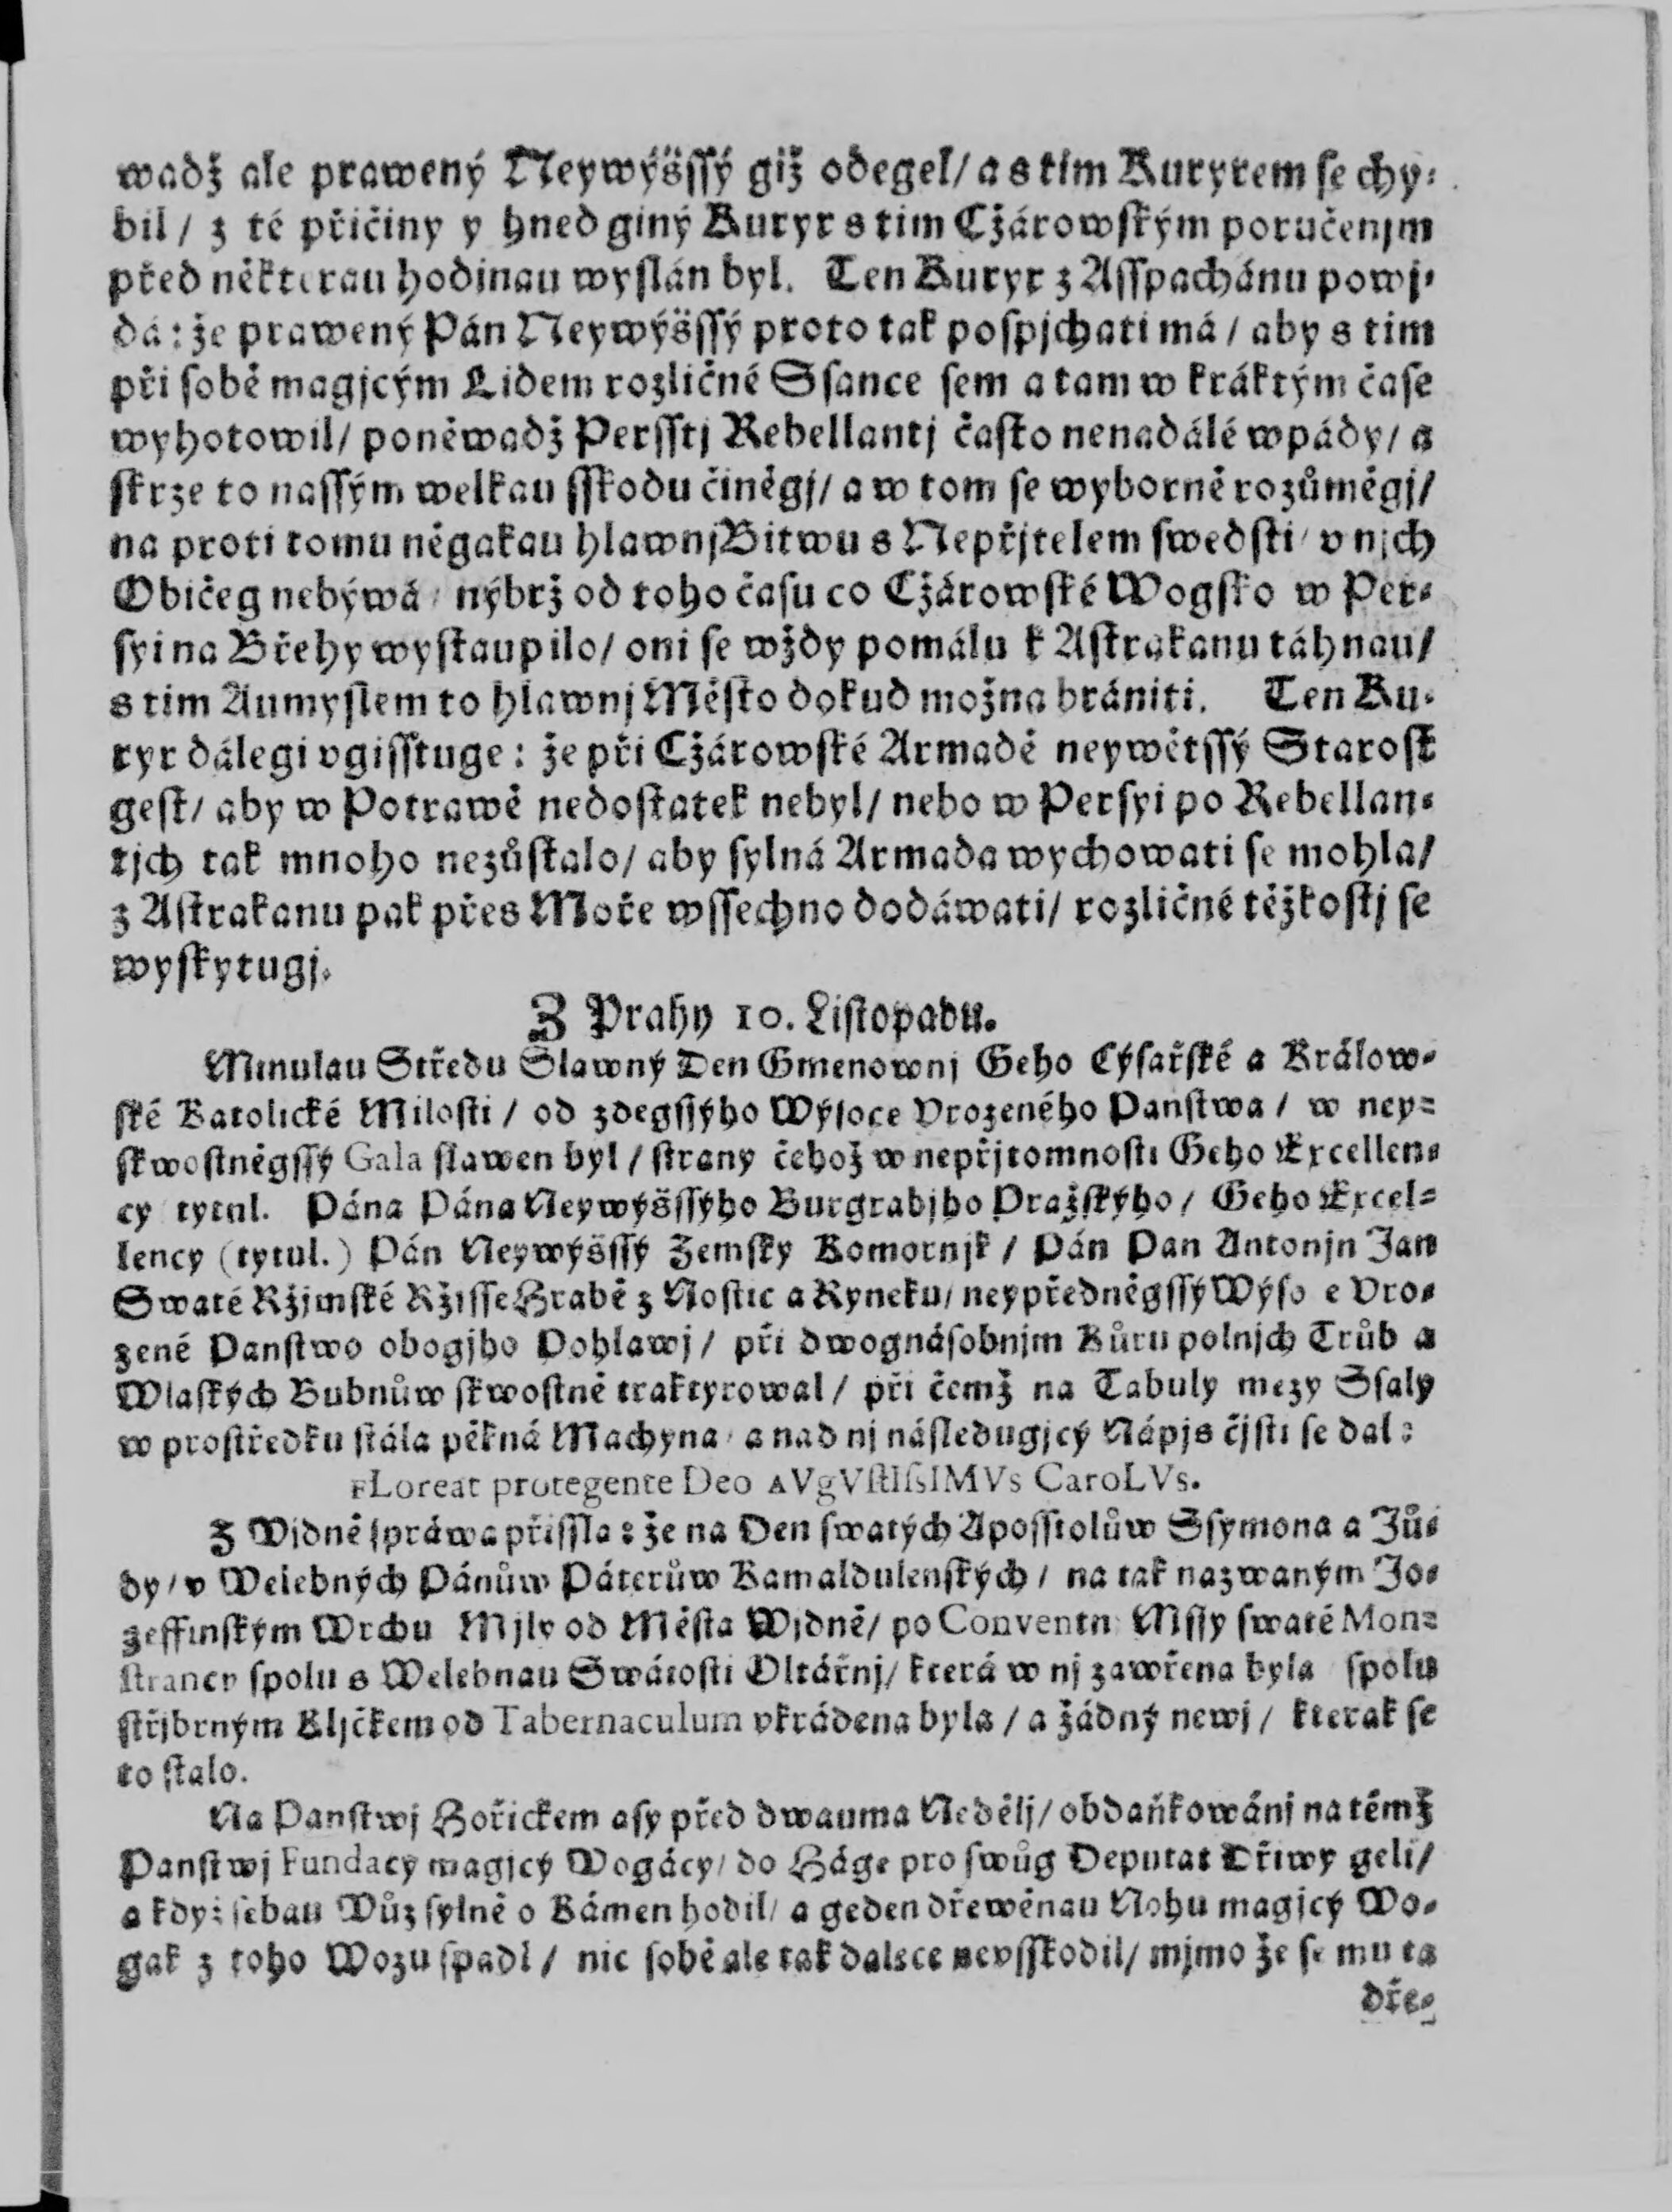 wadž ale prawený Neywýšſſý giž odegel/ a s tím Kuryrem ſe chy-
bil / z té přičiny y hned giný Kuryr s tim Cžárowſkým poručenjm
před některau hodinau wyſlán byl. Ten Kuryr z Aſſpachánu powj-
dá: že prawený Pán Neywýšſſý proto tak poſpjchati má / aby s tim
při ſobě magjcým Lidem rozličné Sſance ſem a tam w kráktým čaſe
wyhotowil/ poněwadž Perſſtj Rebellantj čaſto nenadálé wpády/ a
ſkrze to naſſým welkau ſſkodu činěgj/ a w tom ſe wyborně rozůměgj/
na proti tomu něgakau hlawnj Bitwu s Nepřjtelem ſwedſti / v njch
Običeg nebýwá / nýbrž od toho čaſu co Cžárowſké Wogſko w Per-
ſyi na Břehy wyſtaupilo/ oni ſe wždy pomálu k Aſtrakanu táhnau/
s tim Aumyſlem to hlawnj Měſto dokud možna brániti. Ten Ku-
ryr dálegi vgiſſtuge: že při Cžárowſké Armadě neywětſſý Staroſt
geſt/ aby w Potrawě nedoſtatek nebyl/ nebo w Perſyi po Rebellan-
tjch tak mnoho nezůſtalo/ aby ſylná Armada wychowati ſe mohla/
z Aſtrakanu pak přes Moře wſſechno dodáwati/ rozličné těžkoſtj ſe
wyſkytugj.
Z Prahy 10. Liſtopadu.
Minulau Středu Slawný Den Gmenownj Geho Cýſařſké a Králow-
ſké Katolické Miloſti / od zdegſſýho Wýſoce Vrozeného Panſtwa / w ney-
ſkwoſtněgſſý Gala ſlawen byl / ſtrany čehož w nepřjtomnoſti Geho Excellen-
cy tytul. Pána Pána Neywýšſſýho Burgrabjho Pražſkýho / Geho Excel-
lency (tytul.) Pán Neywýšſſý Zemſky Komornjk / Pán Pan Antonjn Jan
Swaté Ržjmſké Ržiſſe Hrabě z Noſtic a Ryneku/ neypředněgſſý Wýſo e Vro-
zené Panſtwo obogjho Pohlawj / při dwognáſobnjm Kůru polnjch Trůb a
Wlaſkých Bubnůw ſkwoſtně traktyrowal / při čemž na Tabuly mezy Sſaly
w proſtředku ſtála pěkná Machyna / a nad nj náſledugjcý Nápjs čjſti ſe dal:
FLoreat protegente Deo AVgVſtIſsIMVs CaroLVs.
Z Wjdně ſpráwa přiſſla: že na Den ſwatých Apoſſtolůw Sſymona a Jů-
dy / v Welebných Pánůw Páterůw Kamaldulenſkých / na tak nazwaným Jo-
zeffinſkým Wrchu Mjly od Měſta Wjdně/ po Conventn Mſſy ſwaté Mon-
ſtrancy ſpolu s Welebnau Swátoſti Oltářnj/ která w nj zawřena byla ſpolu
ſtřjbrným Kljčkem od Tabernaculum vkrádena byla / a žádný newj / kterak ſe
to ſtalo.
Na Panſtwj Hořickem aſy před dwauma Nedělj/ obdaňkowánj na témž
Panſtwj Fundacy magjcý Wogácy/ do Háge pro ſwůg Deputat Dřiwy geli/
a když ſebau Wůz ſylně o Kámen hodil/ a geden dřewěnau Nohu magjcý Wo-
gak z toho Wozu ſpadl / nic ſobě ale tak dalece nevſſkodil/ mjmo že ſe mu ta
dře-